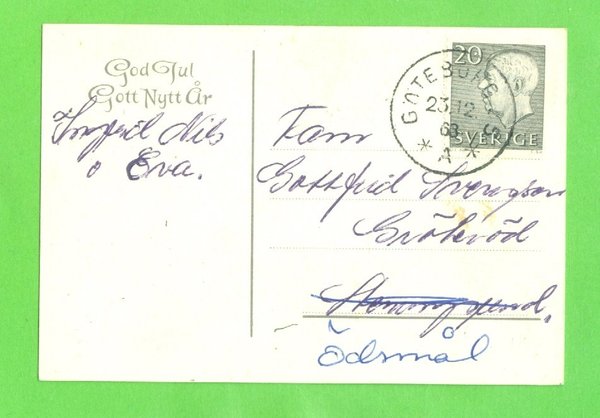 God Jul
Gott Nytt År
Ingrid Nils
o Eva.
20
SVERIGE
GÖTEBORG
23.12.
63
* A *
Fam
Gottfrid Svengson
Grökröd
Ödsmål